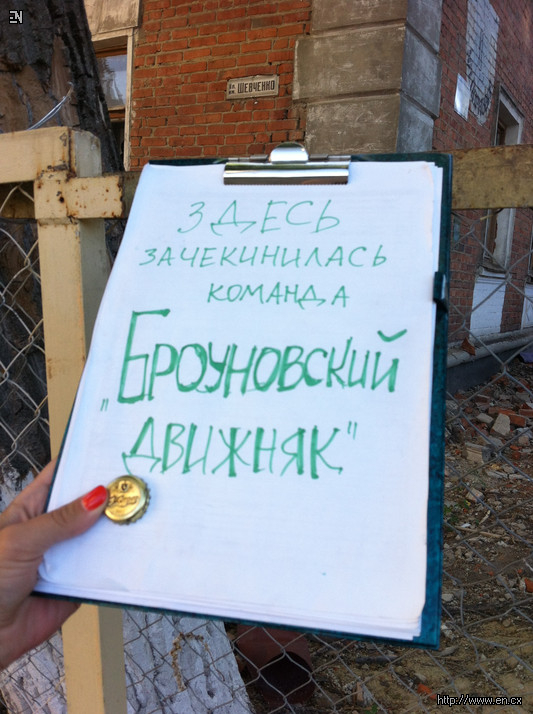 EN
ул. ШЕВЧЕНКО
ЗДЕСЬ
ЗАЧЕКИНИЛАСЬ
КОМАНДА
„БРОУНОВСКИЙ
ДВИЖНЯК"
http://www.en.cx